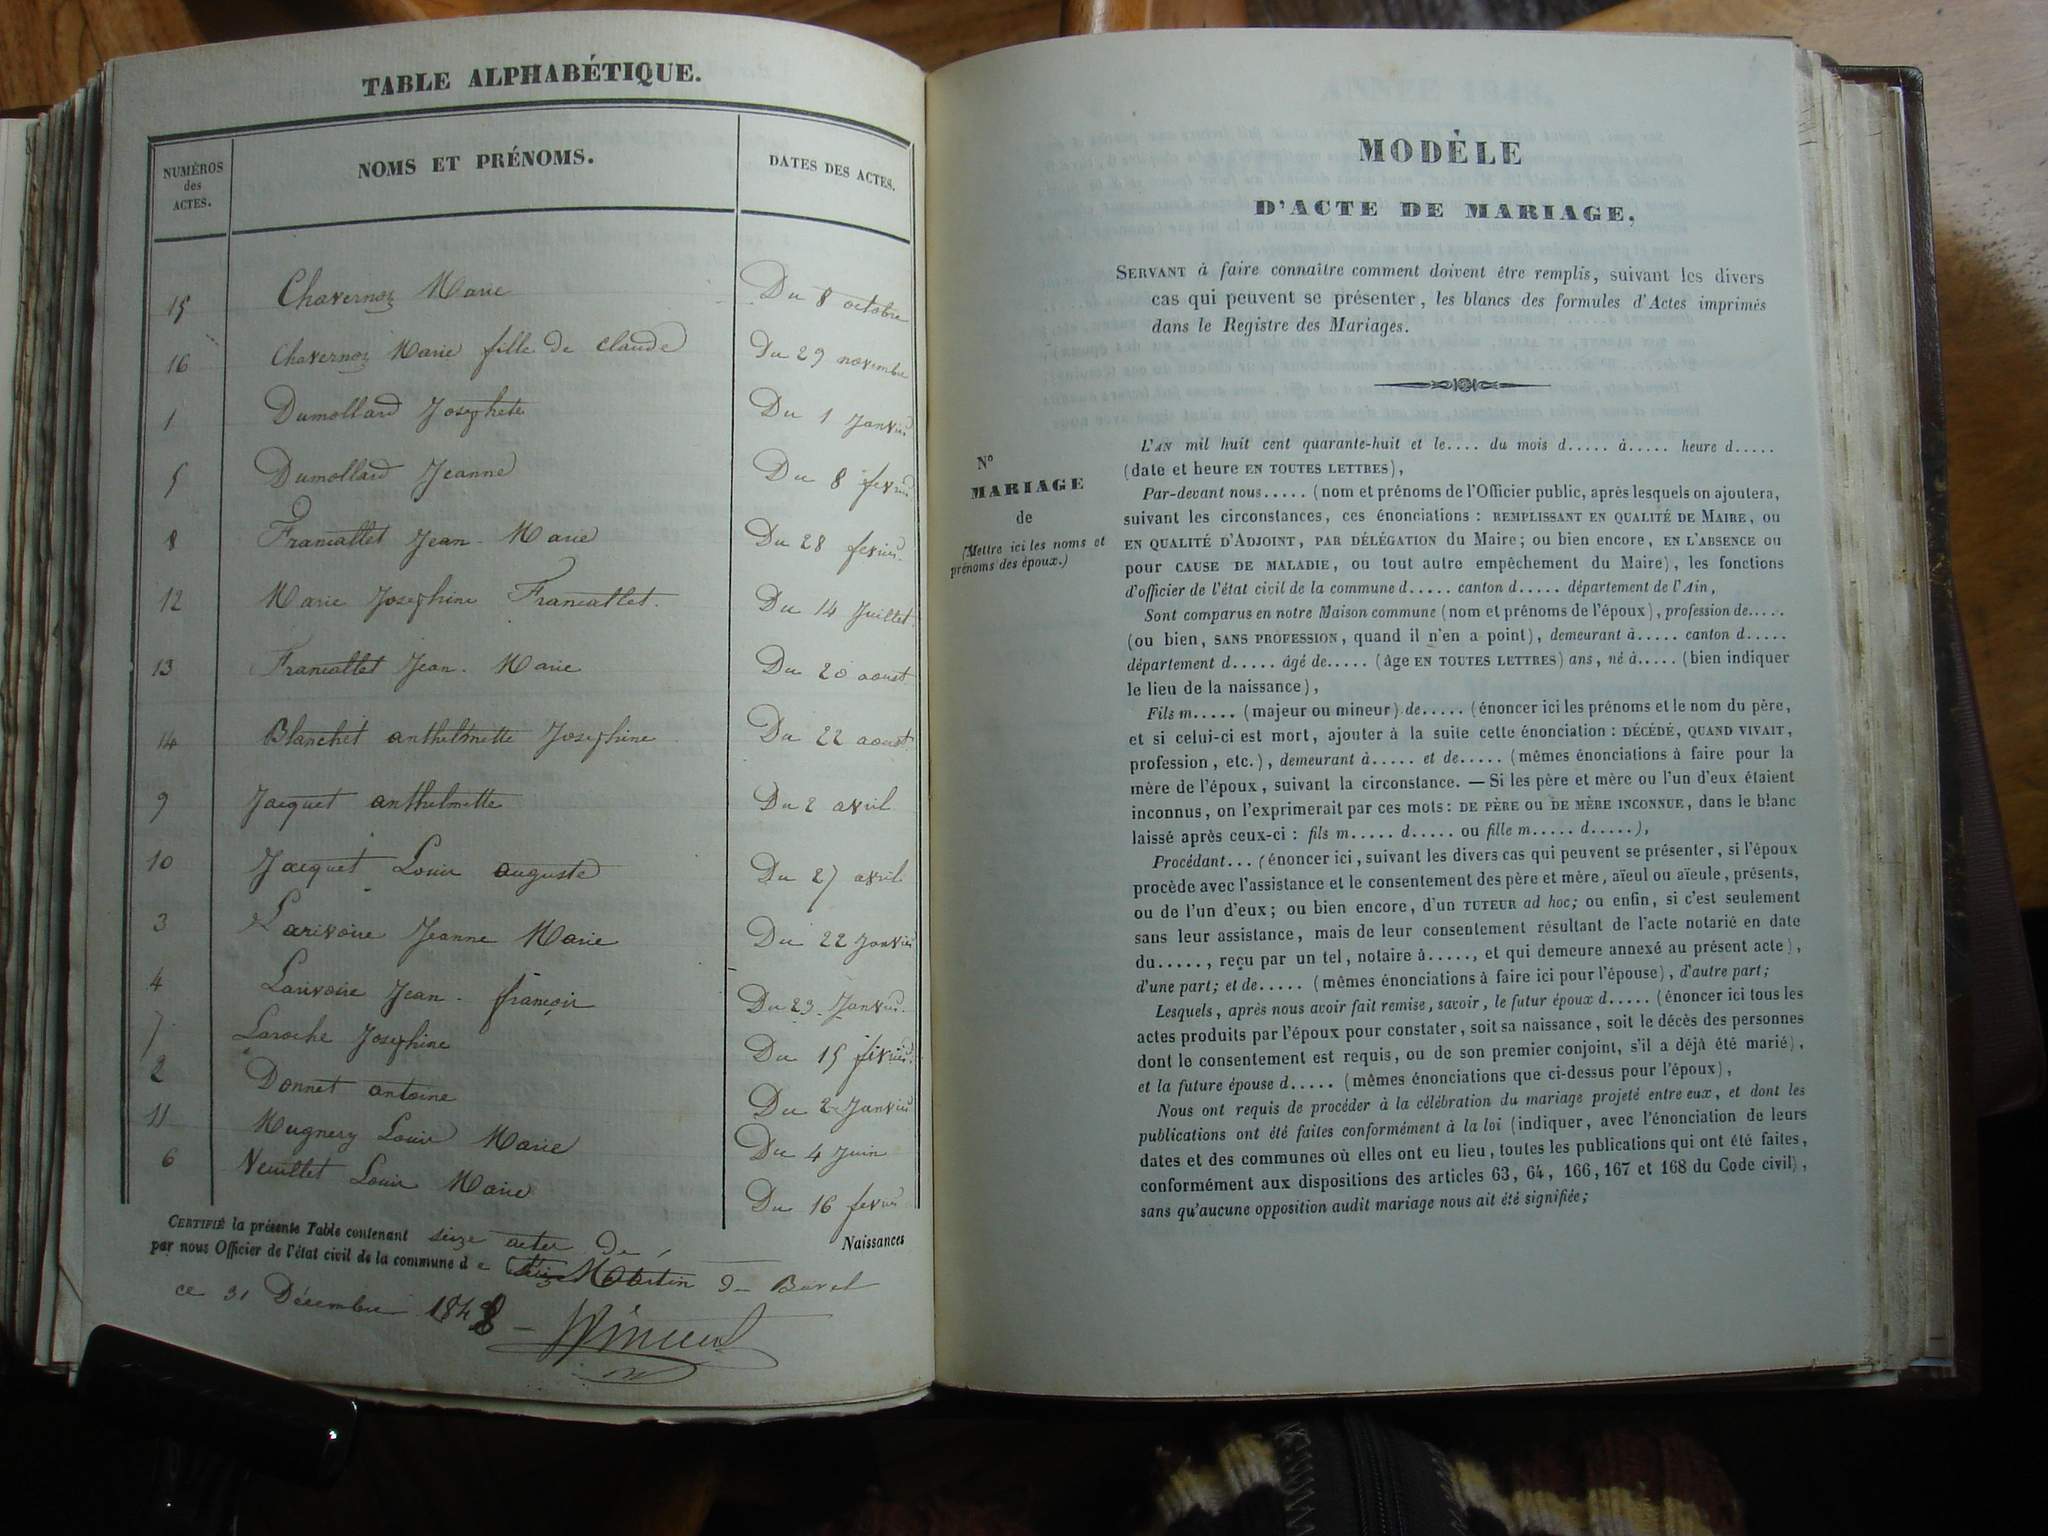 TABLE ALPHABÉTIQUE.
NUMÉROS des ACTES.
NOMS ET PRÉNOMS.
DATES DES ACTES.
15 Chavernoz Marie Du 8 octobre
16 Chavernoz Marie fille de claude Du 29 novembre
1 Dumollard Josephete Du 1 Janvier
5 Dumollard Jeanne Du 8 fevrier
8 Francallet Jean-Marie Du 28 fevrier
12 Marie Josephine Francallet. Du 14 Juillet
13 Francallet Jean-Marie Du 20 aoust
14 Blanchet anthelmette Josephine Du 22 aoust
9 Jacquet anthelmette Du 2 avril
10 Jacquet Louis auguste Du 27 avril
3 Larivoire Jeanne Marie Du 22 Janvier
4 Larivoire Jean-françois Du 23 Janvier
7 Laroche Josephine Du 15 fevrier
2 Donnet antoine Du 2 Janvier
11 Mugnery Louis Marie Du 4 Juin
6 Neuillet Louis Marie Du 16 fevrier
CERTIFIÉ la présente Table contenant seize actes de Naissances
par nous Officier de l'état civil de la commune de Martin de Bavel
ce 31 Décembre 1848
MODÈLE
D'ACTE DE MARIAGE,
SERVANT à faire connaître comment doivent être remplis, suivant les divers
cas qui peuvent se présenter, les blancs des formules d'Actes imprimés
dans le Registre des Mariages.
N°
MARIAGE
de
(Mettre ici les noms et
prénoms des époux.)
L'AN mil huit cent quarante-huit et le.... du mois d..... à..... heure d.....
(date et heure EN TOUTES LETTRES),
Par-devant nous..... (nom et prénoms de l'Officier public, après lesquels on ajoutera,
suivant les circonstances, ces énonciations : REMPLISSANT EN QUALITÉ DE MAIRE, ou
EN QUALITÉ D'ADJOINT, PAR DÉLÉGATION du Maire; ou bien encore, EN L'ABSENCE ou
pour CAUSE DE MALADIE, ou tout autre empêchement du Maire), les fonctions
d'officier de l'état civil de la commune d..... canton d..... département de l'Ain,
Sont comparus en notre Maison commune (nom et prénoms de l'époux), profession de.....
(ou bien, SANS PROFESSION, quand il n'en a point), demeurant à..... canton d.....
département d..... âgé de..... (âge EN TOUTES LETTRES) ans, né à..... (bien indiquer
le lieu de la naissance),
Fils m..... (majeur ou mineur) de..... (énoncer ici les prénoms et le nom du père,
et si celui-ci est mort, ajouter à la suite cette énonciation : DÉCÉDÉ, QUAND VIVAIT,
profession, etc.), demeurant à..... et de..... (mêmes énonciations à faire pour la
mère de l'époux, suivant la circonstance. — Si les père et mère ou l'un d'eux étaient
inconnus, on l'exprimerait par ces mots: DE PÈRE OU DE MÈRE INCONNUE, dans le blanc
laissé après ceux-ci : fils m..... d..... ou fille m..... d.....),
Procédant... (énoncer ici, suivant les divers cas qui peuvent se présenter, si l'époux
procède avec l'assistance et le consentement des père et mère, aïeul ou aïeule, présents,
ou de l'un d'eux; ou bien encore, d'un TUTEUR ad hoc; ou enfin, si c'est seulement
sans leur assistance, mais de leur consentement résultant de l'acte notarié en date
du....., reçu par un tel, notaire à....., et qui demeure annexé au présent acte),
d'une part; et de..... (mêmes énonciations à faire ici pour l'épouse), d'autre part;
Lesquels, après nous avoir fait remise, savoir, le futur époux d..... (énoncer ici tous les
actes produits par l'époux pour constater, soit sa naissance, soit le décès des personnes
dont le consentement est requis, ou de son premier conjoint, s'il a déjà été marié),
et la future épouse d..... (mêmes énonciations que ci-dessus pour l'époux),
Nous ont requis de procéder à la célébration du mariage projeté entre eux, et dont les
publications ont été faites conformément à la loi (indiquer, avec l'énonciation de leurs
dates et des communes où elles ont eu lieu, toutes les publications qui ont été faites,
conformément aux dispositions des articles 63, 64, 166, 167 et 168 du Code civil),
sans qu'aucune opposition audit mariage nous ait été signifiée;